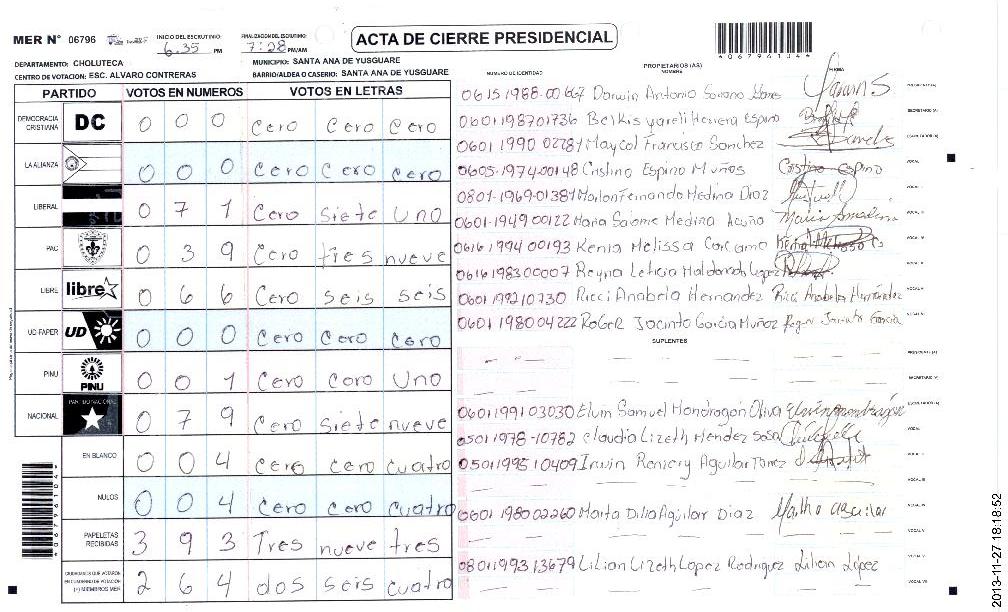 MER N° 06796 INICO DEL ESCRUTINIO: 6:35 PM FINALIZACION DEL ESCRUTINIO: 7:28 PM/AM
ACTA DE CIERRE PRESIDENCIAL
DEPARTAMENTO: CHOLUTECA MUNICIPIO: SANTA ANA DE YUSGUARE
CENTRO DE VOTACION: ESC. ALVARO CONTRERAS BARRIO/ALDEA O CASERIO: SANTA ANA DE YUSGUARE
PARTIDO VOTOS EN NUMEROS VOTOS EN LETRAS
DEMOCRACIA CRISTIANA DC 0 0 0 Cero Cero Cero
LA ALIANZA 0 0 0 Cero Cero Cero
LIBERAL 0 7 1 Cero Siete Uno
PAC 0 3 9 Cero tres nueve
LIBRE libre 0 6 6 Cero seis seis
UD-FAPER UD 0 0 0 Cero Cero Cero
PINU PINU 0 0 1 Cero Cero Uno
NACIONAL PARTIDO NACIONAL 0 7 9 Cero Siete nueve
EN BLANCO 0 0 4 Cero cero cuatro
NULOS 0 0 4 Cero Cero Cuatro
PAPELETAS RECIBIDAS 3 9 3 Tres nueve tres
CIUDADANOS QUE VOTARON EN CUADERNO DE VOTACION (+) MIEMBROS MER 2 6 4 dos seis cuatro
NUMERO DE IDENTIDAD PROPIETARIOS (AS) NOMBRE FIRMA
Darwin Antonio Soriano
0601198701736 Belkis yareli Herrera Espino
0601 1990 02287 Maycol Francisco Sanchez
0605-1974-00148 Cristino Espino Muños Cristino espino
0801-1969-01387 Marlon Fernando Medina Diaz
0601-1949-00122 Maria Salome Medina Acuña Maria
0616 1994 00193 Kenia Melissa Carcamo
0616 1983 00007 Reyna Leticia Maldonado Lopez
0601 199210730 Ricci Anabela Hernandez Ricci Anabela Hernández
0601 1980 04222 RoGER Jacinto Garcia Muñoz Roger Jacinto Garcia
SUPLENTES
0601 1991 03030 Elvin Samuel Mondragon Oliva
0501 1978-10782 Claudia Lizeth Mendez Sosa
0501 1995 10409 Irwin Aguilar
0601 1980 02260 Marta Dilia Aguilar Diaz Martha aguilar
0801 1993 13679 Lilian Lizeth Lopez Rodriguez Lilian López
2013-11-27 18:18:52